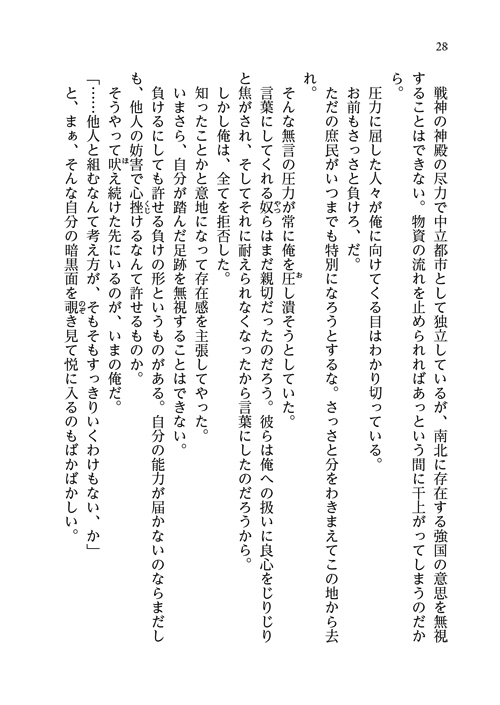 28
戦神の神殿の尽力で中立都市として独立しているが、南北に存在する強国の意思を無視
することはできない。物資の流れを止められればあっという間に干上がってしまうのだか
ら。
圧力に屈した人々が俺に向けてくる目はわかり切っている。
お前もさっさと負けろ、だ。
ただの庶民がいつまでも特別になろうとするな。さっさと分をわきまえてこの地から去
れ。
そんな無言の圧力が常に俺を圧し潰そうとしていた。
言葉にしてくれる奴らはまだ親切だったのだろう。彼らは俺への扱いに良心をじりじり
と焦がされ、そしてそれに耐えられなくなったから言葉にしたのだろうから。
しかし俺は、全てを拒否した。
知ったことかと意地になって存在感を主張してやった。
いまさら、自分が踏んだ足跡を無視することはできない。
負けるにしても許せる負けの形というものがある。自分の能力が届かないのならまだし
も、他人の妨害で心挫けるなんて許せるものか。
そうやって吠え続けた先にいるのが、いまの俺だ。
「……他人と組むなんて考え方が、そもそもすっきりいくわけもない、か」
と、まぁ、そんな自分の暗黒面を覗き見て悦に入るのもばかばかしい。